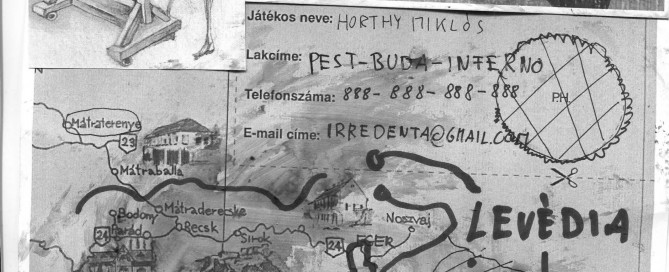 Játékos neve: HORTHY MIKLÓS
Lakcíme: PEST-BUDA-INTERNO
Telefonszáma: 888-888-888-888
E-mail címe: IRREDENTA@GMAIL.COM
P.H.
Mátraterenye
23
Mátraballa
Mátraderecske
Bodony
Parád
Recsk
24
Sirok
24
EGER
Noszvaj
LEVÉDIA